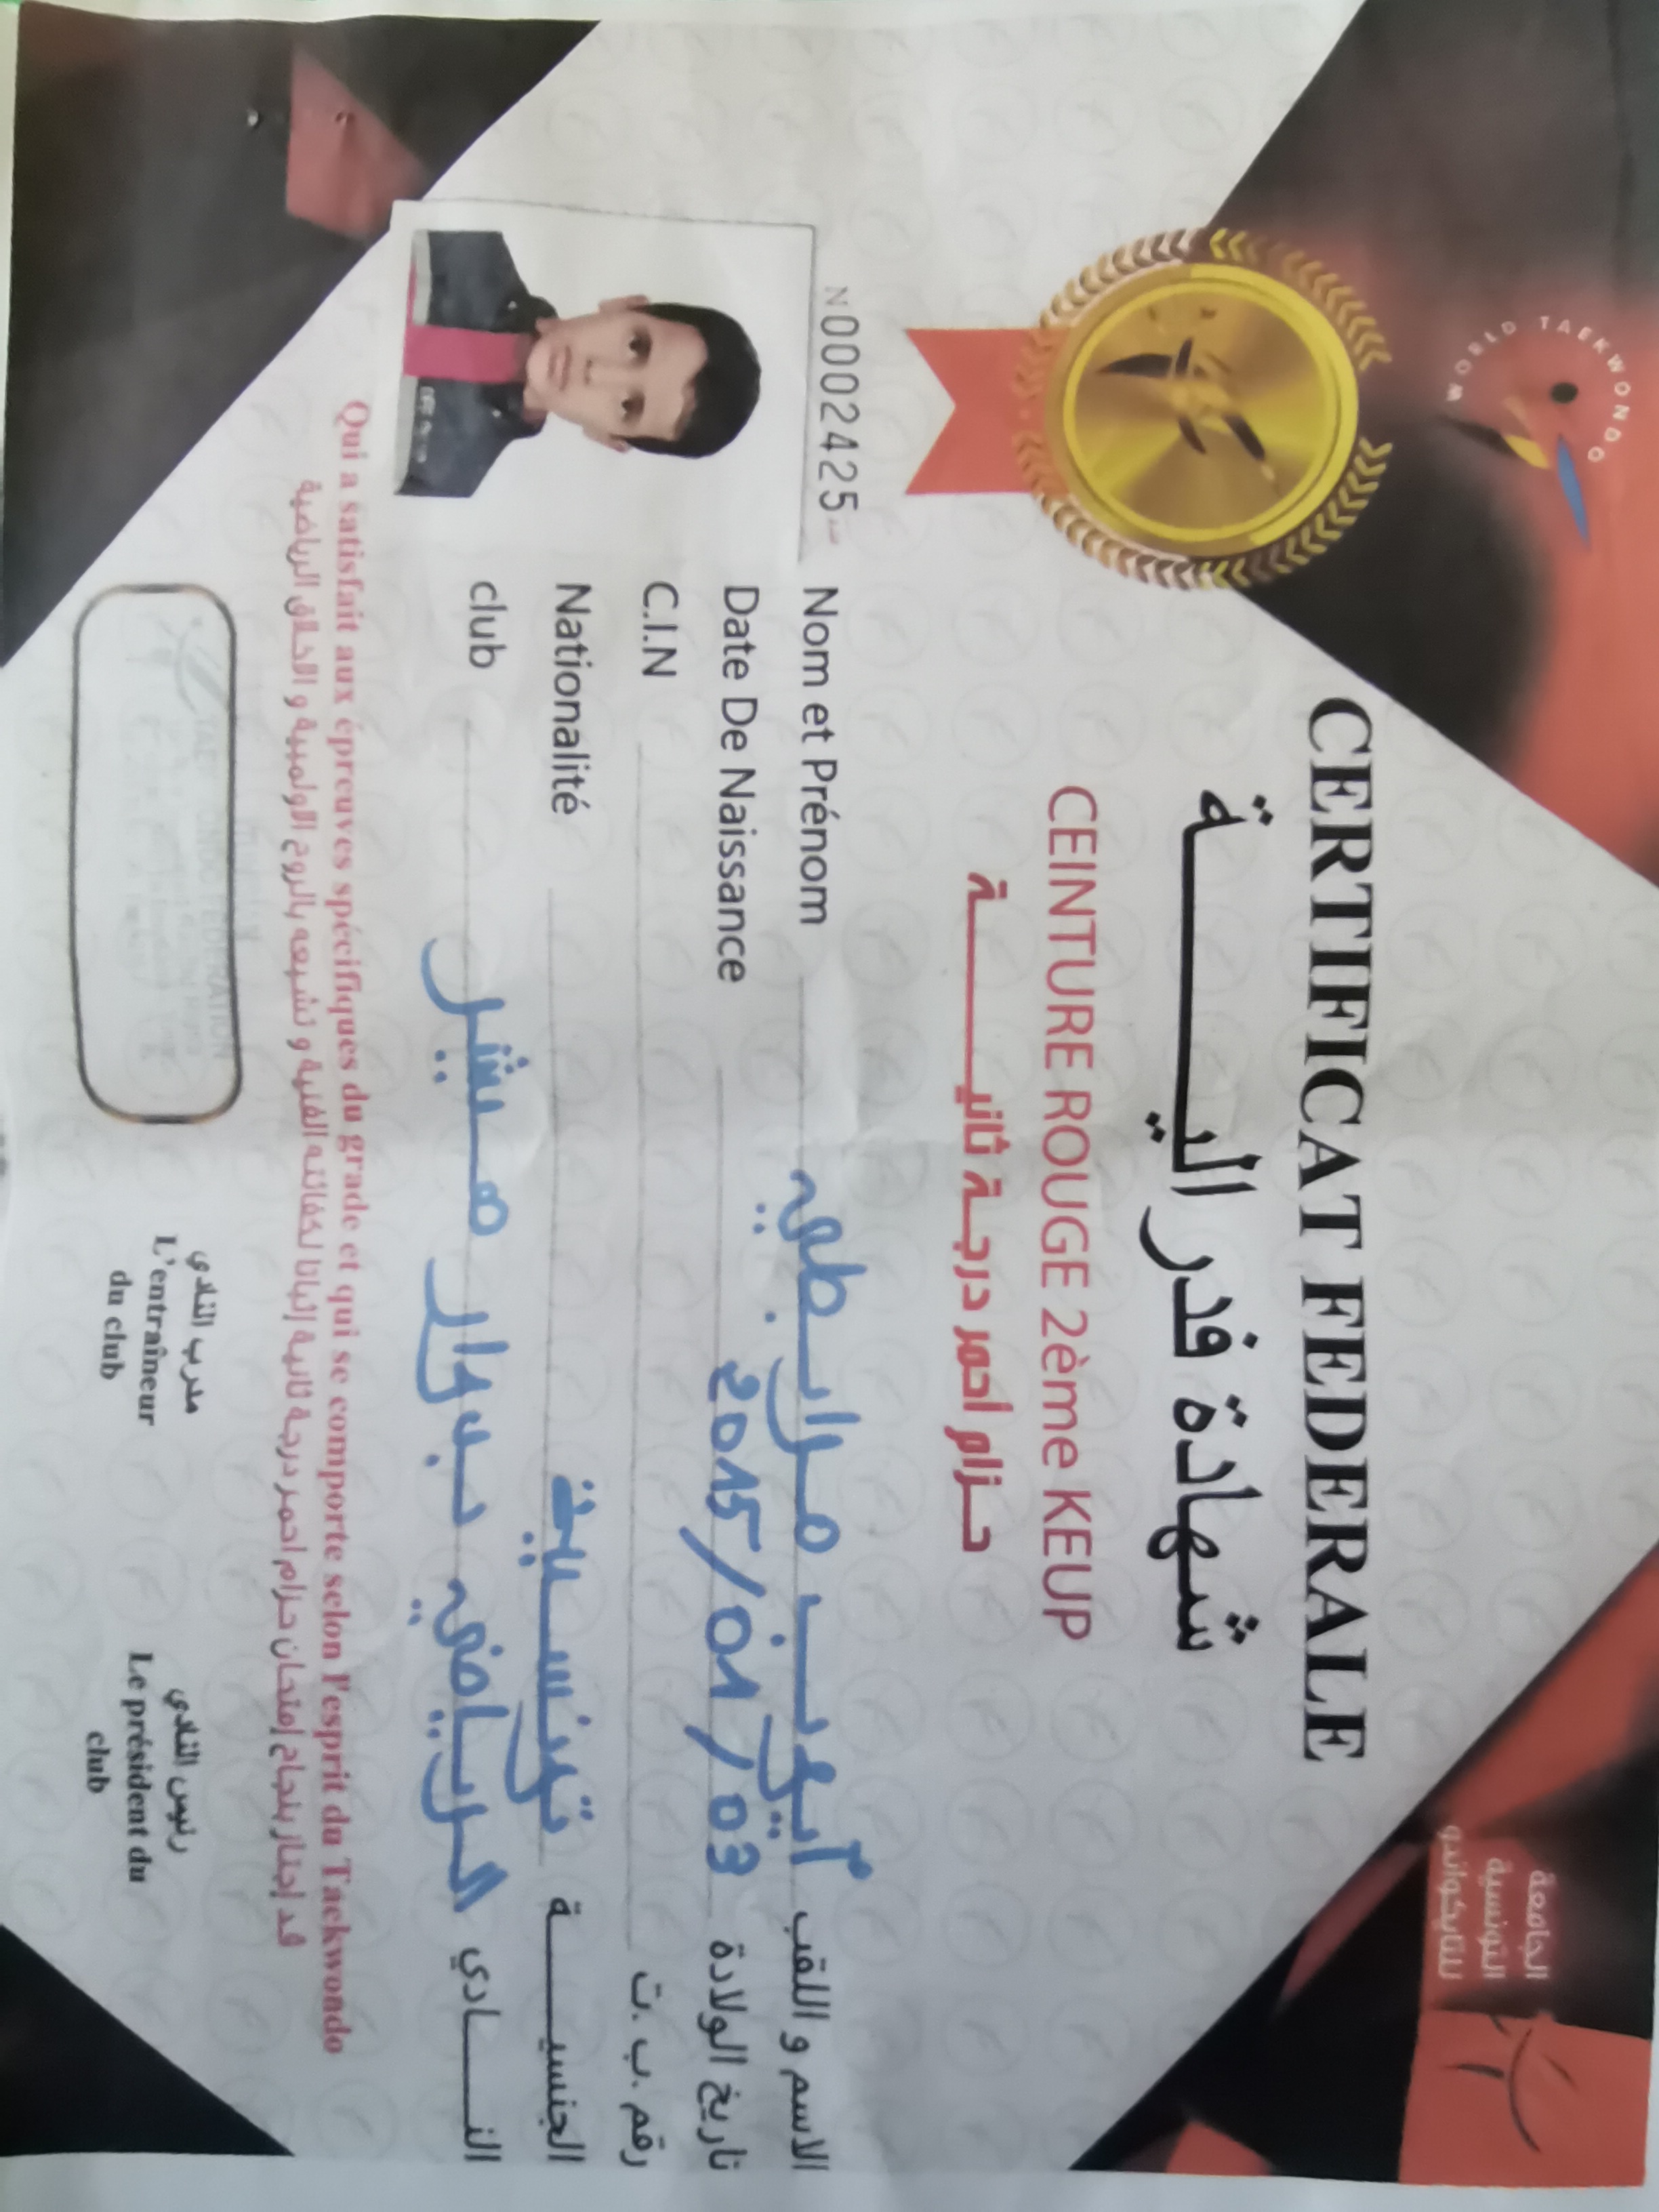 WORLD TAEKWONDO
الجامعة
التونسية
للتايكواندو
CERTIFICAT FEDERALE
شهادة فدراليـــــة
CEINTURE ROUGE 2ème KEUP
حـزام أحمر درجـة ثانيـــــة
N0002425
Nom et Prénom أيوب مرابطي الاسم و اللقب
Date De Naissance 2015/01/03 تاريخ الولادة
C.I.N رقم .ب .ت
Nationalité تونسية الجنسيـــــة
club الرياضي النـــادي
Qui a satisfait aux épreuves spécifiques du grade et qui se comporte selon l'esprit du Taekwondo
قد إجتاز بنجاح إمتحان حزام احمر درجة ثانية إثباتا لكفائته الفنية و تشبعه بالروح الاولمبية و الاخلاق الرياضية
TAEKWONDO FEDERATION
مدرب النادي
L'entraîneur
du club
رئيس النادي
Le président du
club